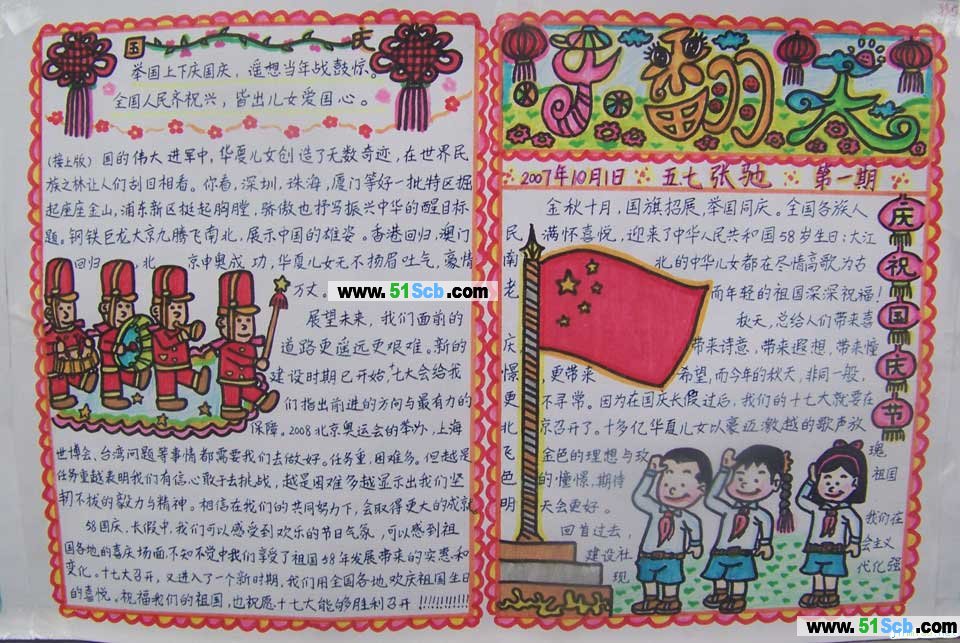 国庆
举国上下庆国庆，遥想当年战鼓惊。
全国人民齐祝兴，皆出儿女爱国心。
(接上版) 国的伟大进军中，华夏儿女创造了无数奇迹，在世界民
族之林让人们刮目相看。你看，深圳，珠海，厦门等好一批特区掘
起座座金山，浦东新区挺起胸膛，骄傲也抒写振兴中华的醒目标
题。钢铁巨龙大京九腾飞南北，展示中国的雄姿。香港回归，澳门
回归，北京申奥成功，华夏儿女无不扬眉吐气，豪情
万丈。
www.51Scb.com
展望未来，我们面前的
道路更遥远更艰难。新的
建设时期已开始，十七大会给我
们指出前进的方向与最有力的
保障。2008北京奥运会的举办，上海
世博会、台湾问题等事情都需要我们去做好。任务重，困难多。但越是
任务重越表明我们有信心敢于去挑战，越是困难多越显示出我们坚
韧不拔的毅力与精神。相信在我们的共同努力下，会取得更大的成就
58国庆、长假中，我们可以感受到欢乐的节日气氛，可以感到祖
国各地的喜庆场面，不知不觉中我们享受了祖国58年发展带来的实惠和
变化。十七大召开，又进入了一个新时期，我们用全国各地欢庆祖国生日
的喜悦。祝福我们的祖国，也祝愿十七大能够胜利召开!!!!!!!!!!
乐翻天
2007年10月1日 五.七 张驰 第一期
金秋十月，国旗招展，举国同庆。全国各族人
民，满怀喜悦，迎来了中华人民共和国58岁生日：大江
南北的中华儿女都在尽情高歌，为古
老而年轻的祖国深深祝福!
秋天，总给人们带来喜
庆，带来诗意，带来遐想，带来憧
憬，更带来希望，而今年的秋天，非同一般，
更不寻常。因为在国庆长假过后，我们的十七大就要在
北京召开了。十多亿华夏儿女以豪迈激越的歌声放
飞金色的理想与玫瑰
色的憧憬，期待祖国
明天会更好。
回首过去，我们在
建设社会主义
现代化强
庆祝国庆节
www.51Scb.com